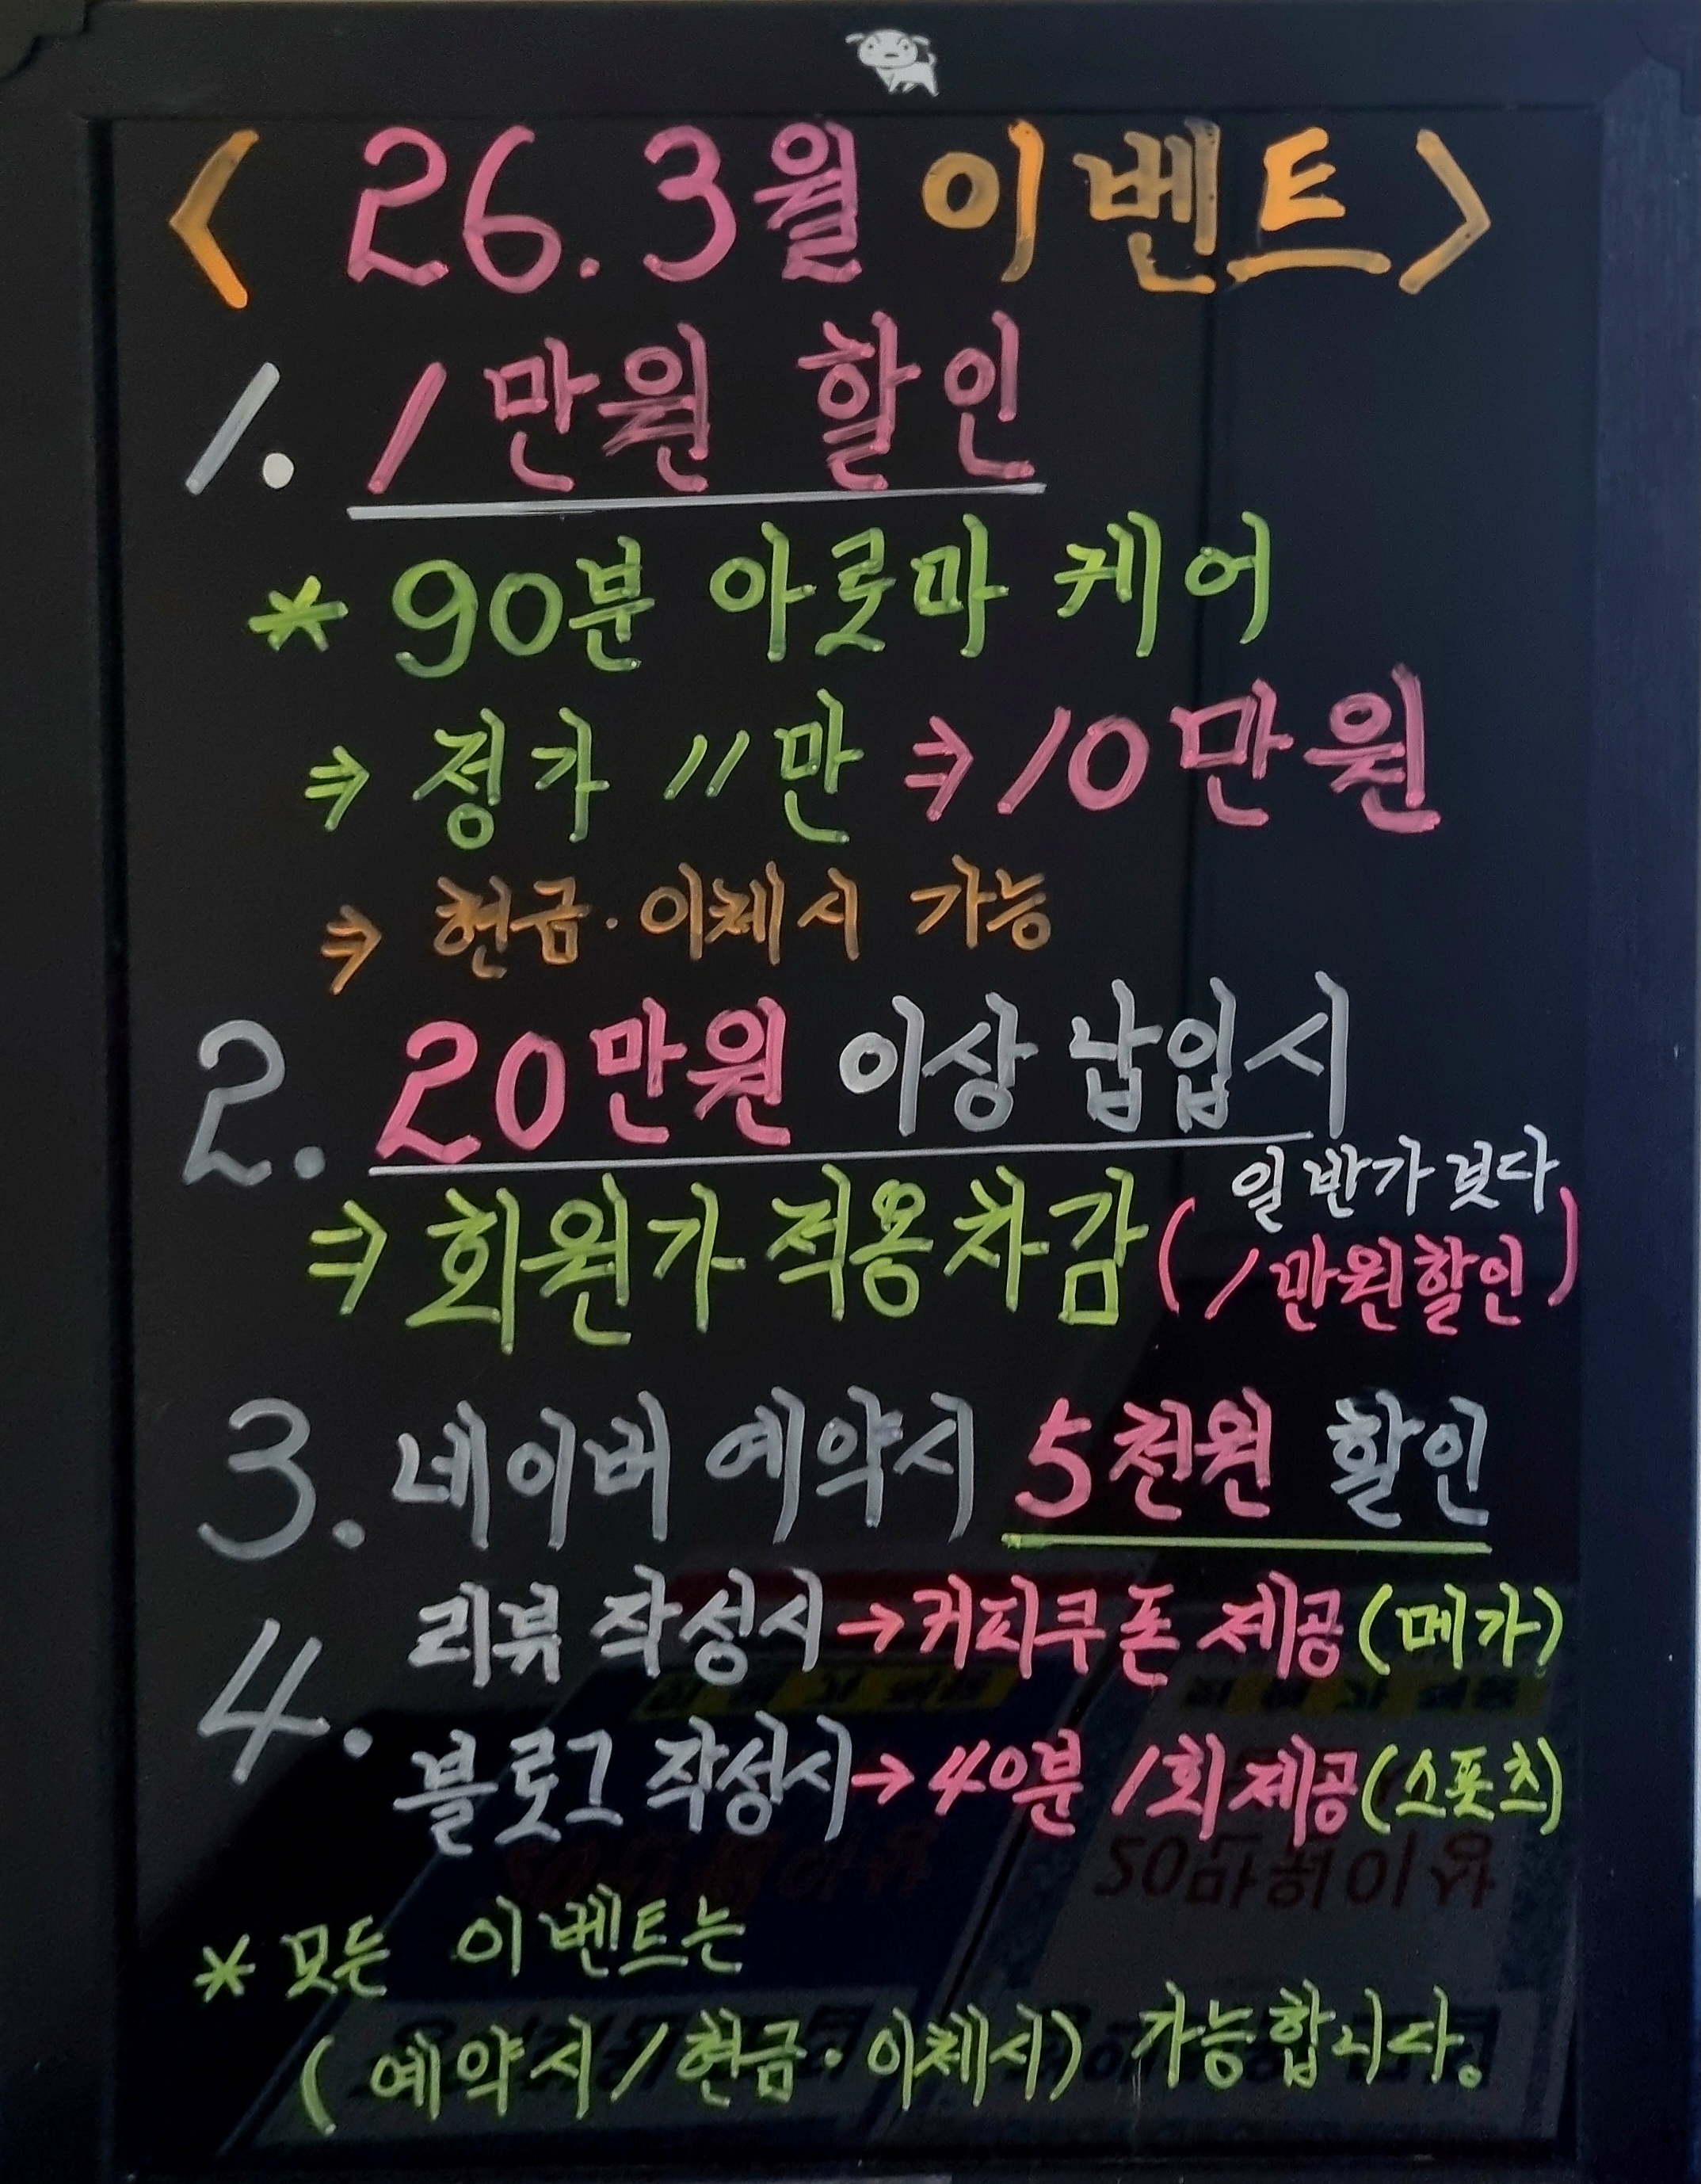 < 26.3월 이벤트 >
1. 1만원 할인
* 90분 아로마 케어
⇒ 정가 11만 ⇒ 10만원
⇒ 현금·이체시 가능
2. 20만원 이상 납입시
⇒ 회원가 적용차감 (일반가보다 1만원할인)
3. 네이버 예약시 5천원 할인
4. 리뷰 작성시 → 커피쿠폰 제공 (메가)
블로그 작성시 → 40분 1회 제공 (스포츠)
* 모든 이벤트는
(예약시/현금·이체시) 가능합니다.